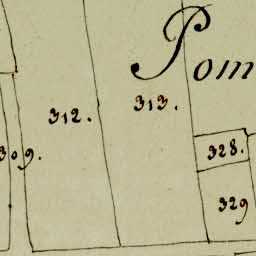 Pom
313.
312.
328.
309.
329